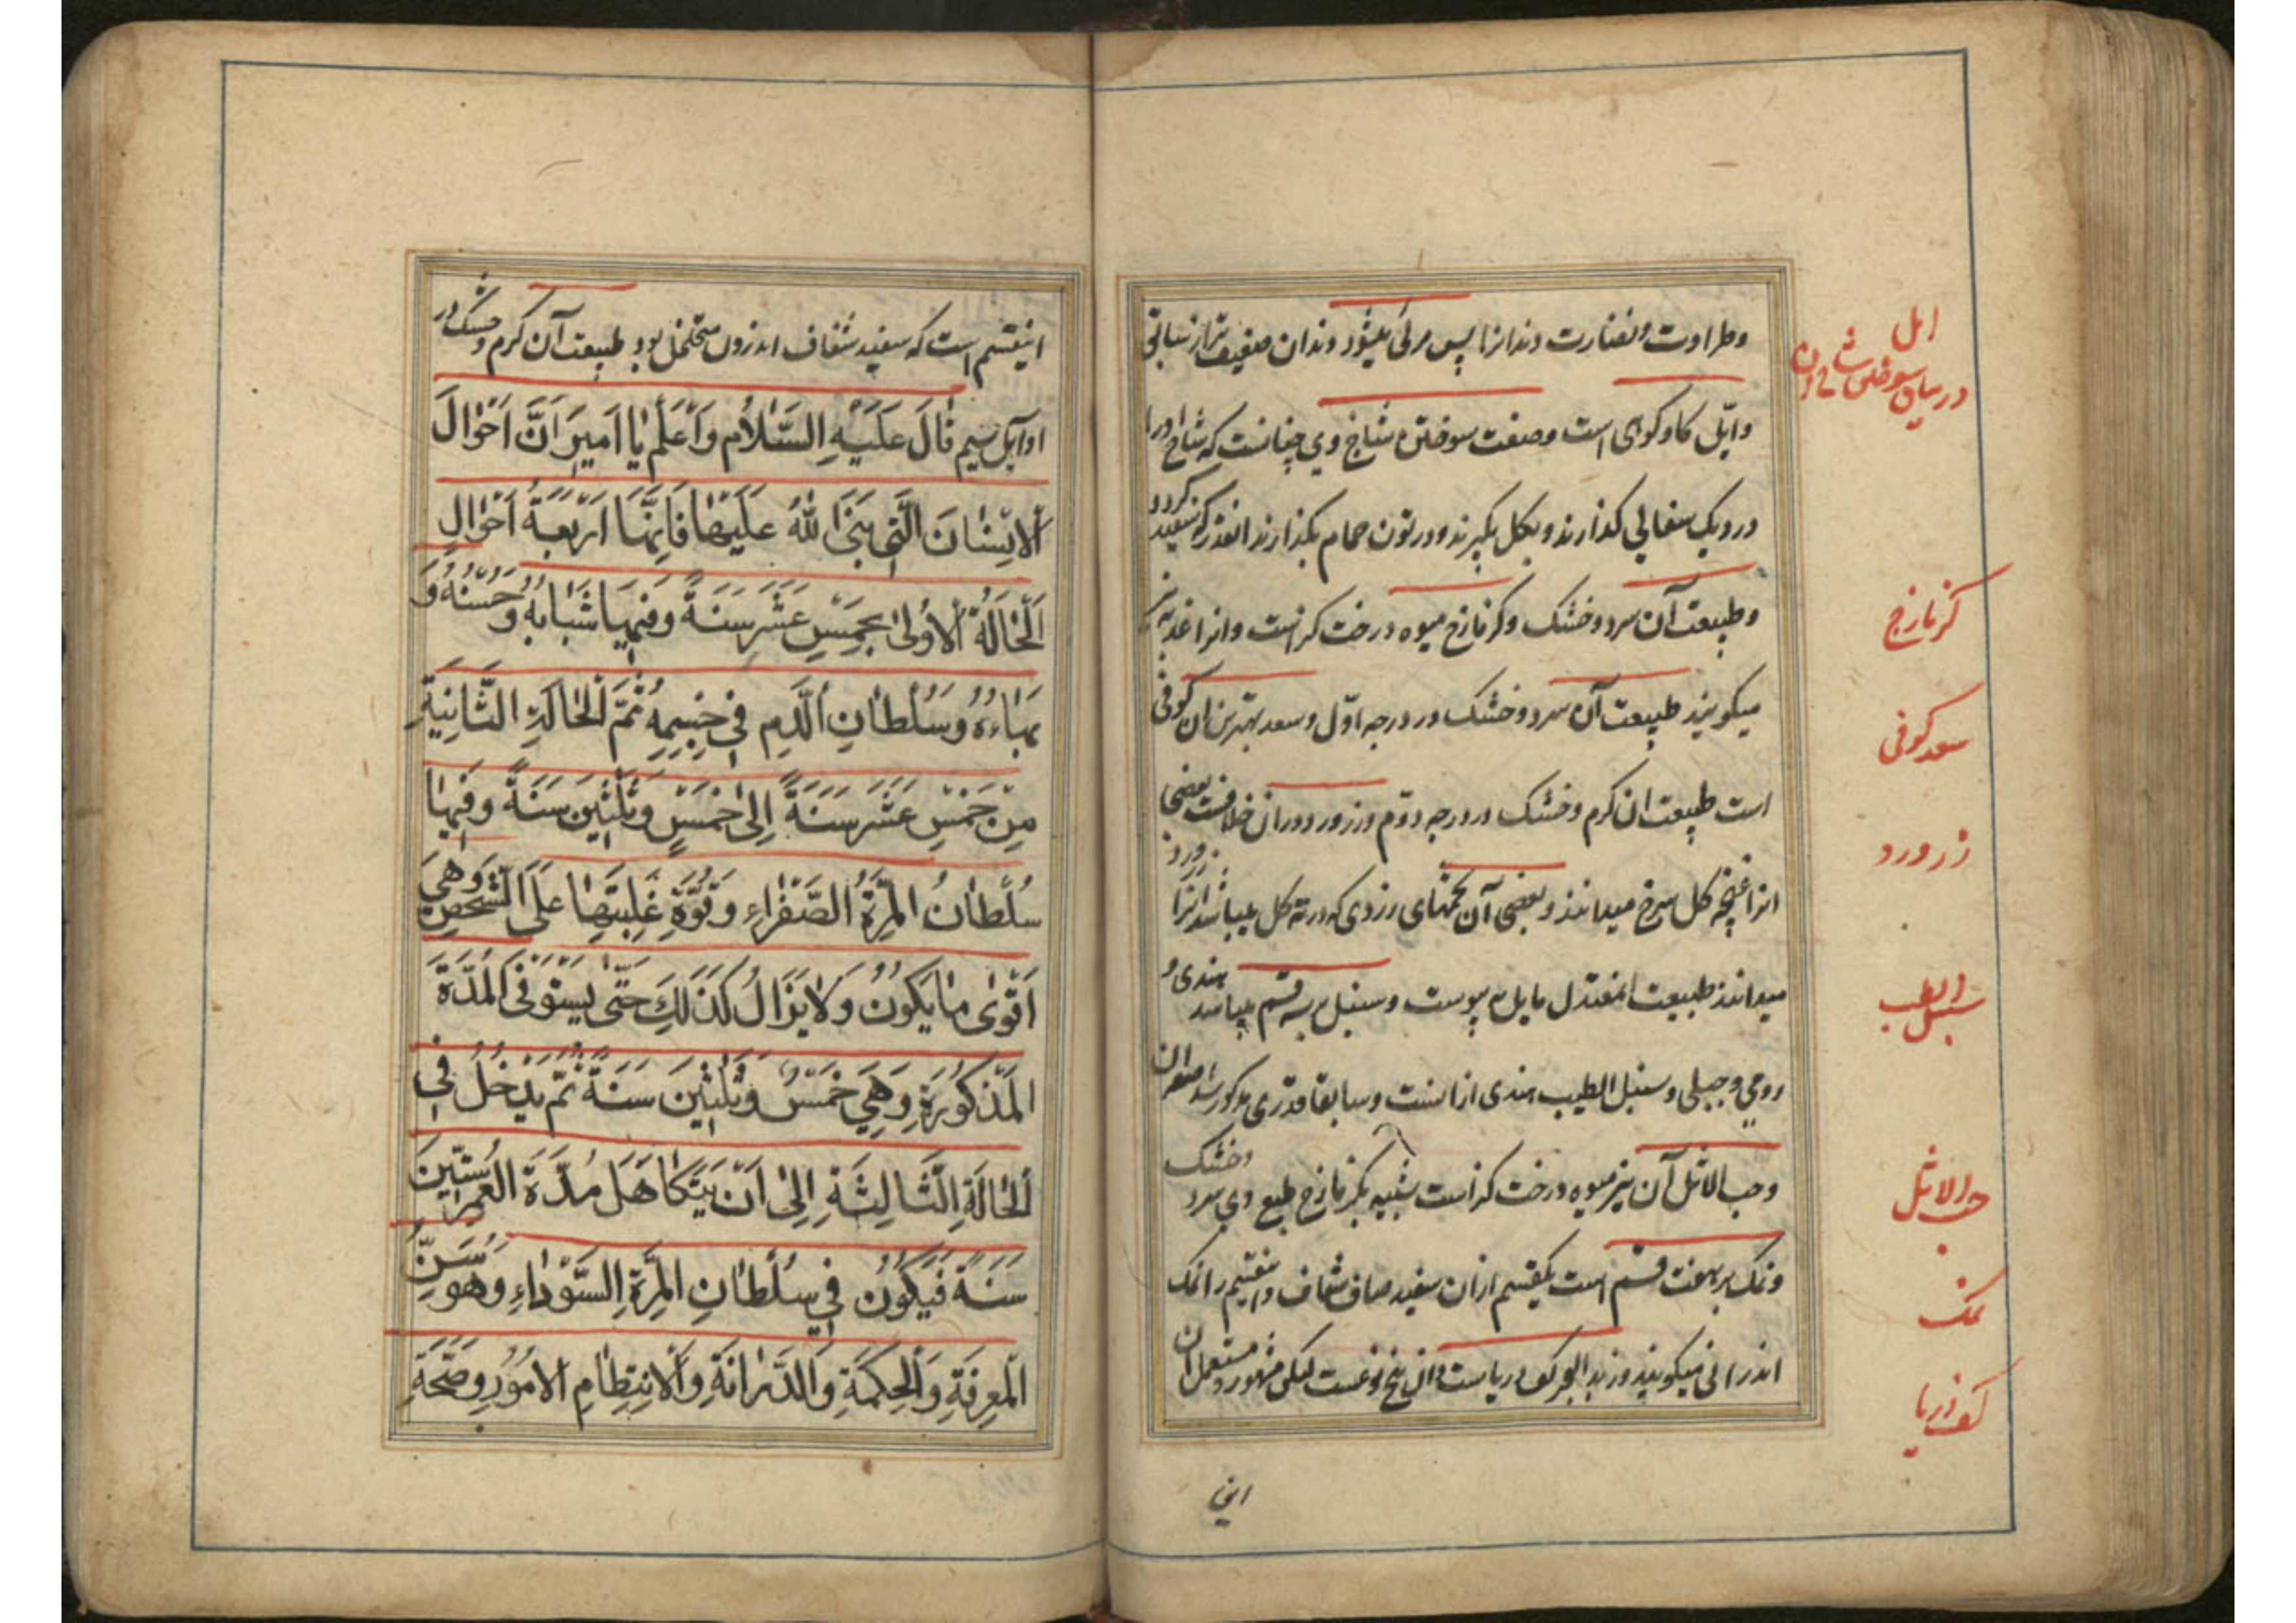 و طراوت و نضارت دندانرا پس مرئی میشود دندان ضعیف تر از نباتی
و ایّل کاو کوهی است و صفت سوختن شاخ وی چنانست که شاخ اورا
در دیک سفالی کذارند و بکل بکیرند و در تون حمام بکذارند انقدر که سفید کردد
و طبیعت آن سرد و خشک و کزمازج میوه درخت کز است و انرا عذبه نیز
میکویند طبیعت آن سرد و خشک در درجه اوّل و سعد بهترین ان کوفی
است طبیعت ان کرم و خشک در درجه دوّم و زرورد در ان خلافست بعضی
انرا غنچه کل سرخ میدانند و بعضی آن تخمهای زردی که در ته کل میباشد انرا زرورد
میدانند طبیعت معتدل مایل به یبوست و سنبل بر سه قسم میباشد هندی و
رومی و جبلی و سنبل الطیب هندی از انست و سابقا قدری مذکور شد
و حب الاثل آن نیز میوه درخت کز است شبیه بکزمازج طبع وی سرد و خشک
و نمک بر هفت قسم است یکقسم از ان سفید صاف شفاف و اینقسم را نمک
اندرانی میکویند و زبد البحر کف دریاست و ان پنج نوعست لیکن مشهور و مستعمل ان
این
ایل
در بیان سوختن شاخ ان
کزمازج
سعد کوفی
زرورد
سنبل الطیب
حب الاثل
نمک
کف دریا
اینقسم است که سفید شفاف اندرون متخلخل بود طبیعت آن کرم و خشک در
اوایل سیم قَالَ عَلَيْهِ السَّلَامُ وَاَعْلَمْ يَا اَمِيرَ اَنَّ اَحْوَالَ
اَلْاِنْسَانَ الَّتِي بَنَى اللّٰهُ عَلَيْهَا فَاِنَّهَا اَرْبَعَةُ اَحْوَالٍ
اَلْحَالَةُ الْاُولٰى بِخَمْسِ عَشَرَ سَنَةً وَ فِيهَا شَبَابُهُ وَ حُسْنُهُ وَ
بَهَاءُهُ وَ سُلْطَانِ الدَّمِ فِي جِسْمِهِ ثُمَّ الْحَالَةِ الثَّانِيَةِ
مِنْ خَمْسِ عَشَرَ سَنَةً اِلٰى خَمْسٍ وَ ثَلٰثِينَ سَنَةً وَ فِيهَا
سُلْطَانُ الْمِرَّةِ الصَّفْرَاءِ وَ قُوَّةِ غَلَبَتِهَا عَلَى الشَّخْصِ وَ هِيَ
اَقْوٰى مَا يَكُونُ وَ لَا يَزَالُ كَذَلِكَ حَتّٰى يَسْتَوْفِى الْمُدَّةَ
الْمَذْكُورَةِ وَ هِيَ خَمْسٌ وَ ثَلٰثِينَ سَنَةً ثُمَّ يَدْخُلُ فِي
اَلْحَالَةِ الثَّالِثَةِ اِلٰى اَنْ يَتَكَاهَلَ مُدَّةَ الْعُمْرِ سِتِّينَ
سَنَةً فَيَكُونُ فِي سُلْطَانِ الْمِرَّةِ السَّوْدَاءِ وَ هُوَ سِنِّ
الْمَعْرِفَةِ وَ الْحِكْمَةِ وَ الدِّرَايَةِ وَ الْاِنْتِظَامِ الْاُمُورِ وَ صِحَّةِ